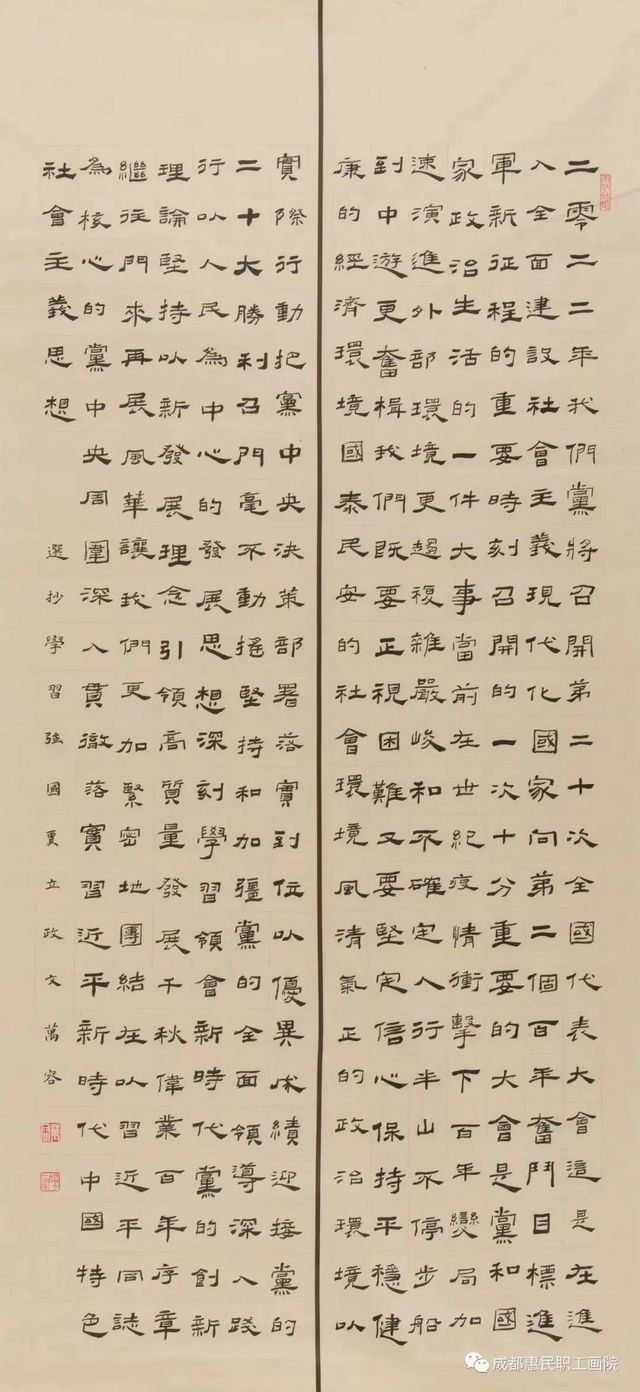 二零二二年我們黨將召開第二十次全國代表大會這是在進
入全面建設社會主義現代化國家向第二個百年奮鬥目標進
軍新征程的重要時刻召開的一次十分重要的大會是黨和國
家政治生活的一件大事當前在世紀疫情衝擊下百年變局加
速演進外部環境更趨複雜嚴峻和不確定人行半山不停步船
到中游更奮楫我們既要正視困難又要堅定信心保持平穩健
康的經濟環境國泰民安的社會環境風清氣正的政治環境以
實際行動把黨中央決策部署落實到位以優異成績迎接黨的
二十大勝利召門毫不動搖堅持和加彊黨的全面領導深入踐
行以人民為中心的發展思想深刻學習領會新時代黨的創新
理論堅持以新發展理念引領高質量發展千秋偉業百年序章
繼往門來再展風華讓我們更加緊密地團結在以習近平同誌
為核心的黨中央周圍深入貫徹落實習近平新時代中國特色
社會主義思想
選抄學習強國更立政文萬容
成都惠民职工画院